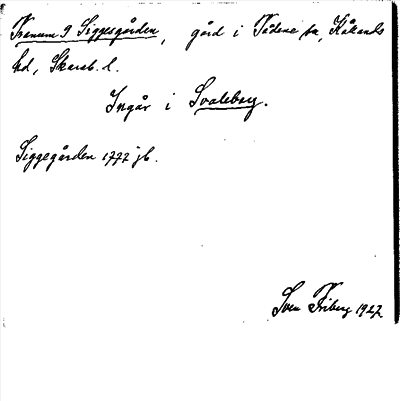 Tranum 9 Siggesgården, gård i Tådene sn, Kållands
hd, Skarab. l.
Ingår i Svaleberg.
Siggegården 1777 jb.
Sven Friberg 1927.